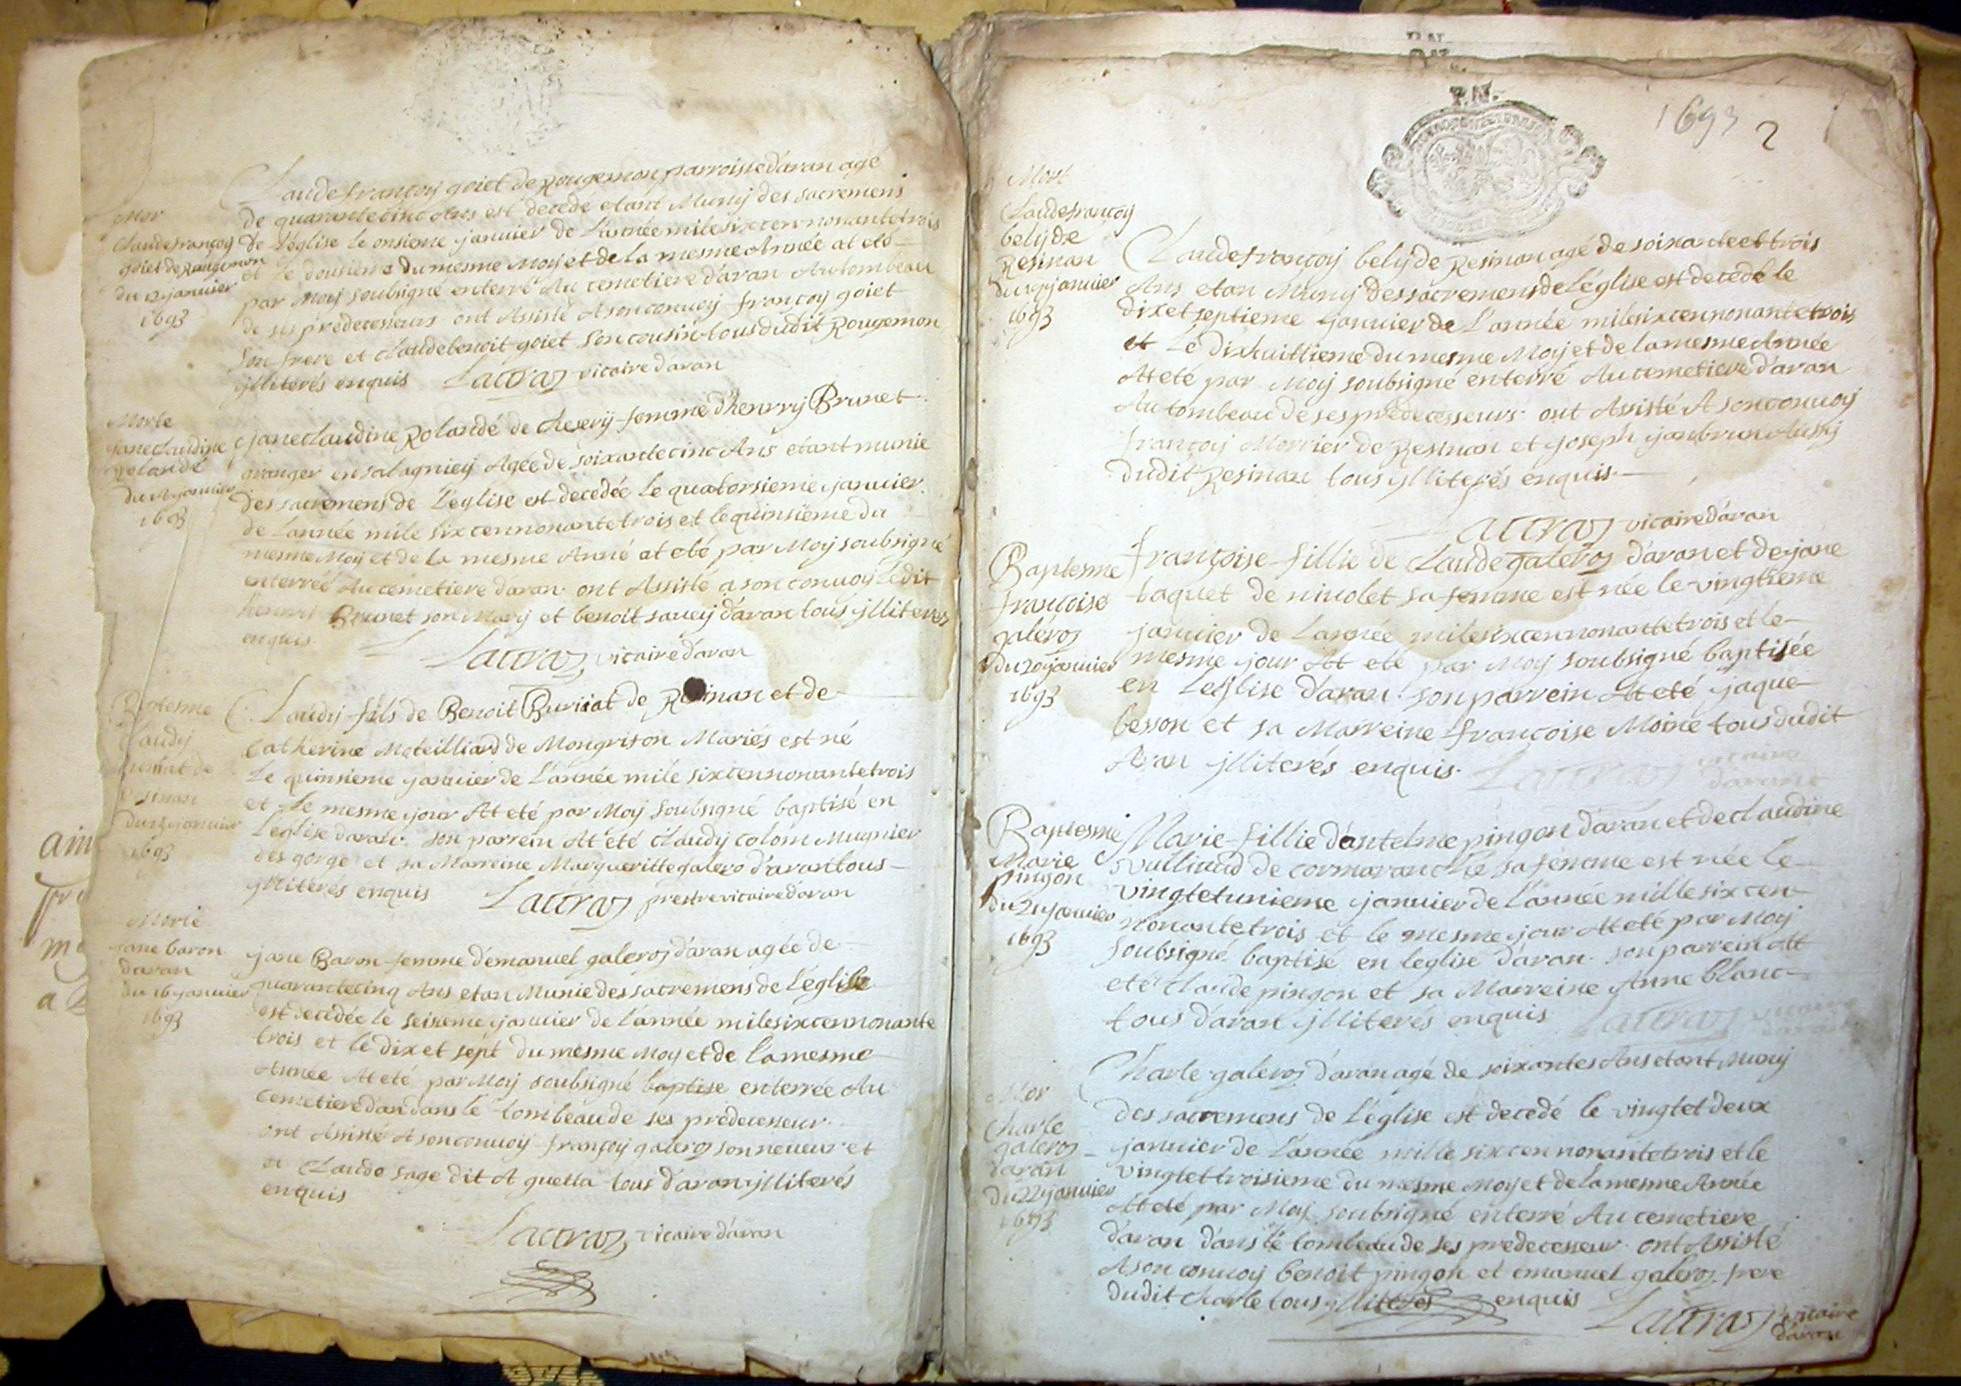 Mor
Claude françoy
goiet de Rougemon
du 12 janvier
1693
Claude françoy goiet de Rougemon parroisse d'aran agé
de quarantecinc Ans est decedé etant Muny des sacremens
de L'église le onsieme janvier de L'année mile six cen nonantetrois
et le dousieme du mesme Moy et de la mesme Année at eté
par Moy soubsigné enterré Au cemetiere d'aran Au tombeau
de ses predecesseurs ont Assisté A son convoy françoy goiet
son frere et Claude benoit goiet son cousin tous dudit Rougemon
ylliterés enquis Lacraz vicaire d'aran
Morte
janeclaudine
Rolande
janvier
1693
janeclaudine Rolandé de chesery femme d'henrry Brunet
granger en salagniey Agée de soixantecinc Ans etant munie
des sacremens de L'église est decedée le quatorsieme janvier
de L'année mile six cen nonantetrois et le quinsieme du
mesme Moy et de la mesme Anné at eté par Moy soubsigné
enterrée Au cemetiere d'aran ont Assisté a son convoy Ledit
henrri Brunet son Mary et benoit savey d'aran tous ylliteres
enquis
Lacraz vicaire d'aran
Baptesme
Claudy
de
Resinan
du 15 janvier
1693
Claudy fils de Benoit Buriat de Resinan et de
Catherine Meteilliard de Mongriton Mariés est né
Le quinsieme janvier de L'année mile six cen nonantetrois
et Le mesme jour At eté par Moy soubsigné baptisé en
L'eglise d'aran son parrein At été Claudy colom Mugnier
des gorge et sa Marreine Margueritte galero d'aran tous
ylliterés enquis Lacraz prestre vicaire d'aran
Morte
jane baron
d'aran
du 16 janvier
1693
jane Baron femme d'emanuel galeroz d'aran agée de
quarantecinq Ans etan Munie des sacremens de L'église
est decedée le seisieme janvier de L'année mile six cen nonante
trois et le dix et sept du mesme Moy et de la mesme
Année At eté par Moy soubsigné baptise enterrée Au
cemetiere d'an dans le tombeau de ses predecesseur
ont Assisté A son convoy françoy galeroz son neveur et
et Claude sage dit A quetta tous d'aran ylliterés
enquis
Lacraz vicaire d'aran
P.N.
1693 2
Mort
Claude françoy
bely de
Resinan
janvier
1693
Claude françoy bely de Resinan agé de soixante et trois
Ans etan Muny des sacremens de L'église est decedé le
dix et septieme janvier de L'année mile six cen nonantetrois
et Le dixhuittieme du mesme Moy et de la mesme Année
At eté par Moy soubsigné enterré Au cemetiere d'aran
Au tombeau de ses predecesseurs ont Assisté A son convoy
françoy Morrier de Resinan et joseph janbrun Aussy
dudit Resinan tous ylliterés enquis
Lacraz vicaire d'aran
Baptesme
françoise
galéroz
du 20 janvier
1693
françoise fillie de Claude galéroz d'aran et de jane
baquet de nivolet sa femme est née le vingtieme
janvier de L'année mile six cen nonantetrois et le
mesme jour At eté par Moy soubsigné baptisée
en L'église d'aran son parrein At eté jaque
besson et sa Marreine françoise Moine tous dudit
Aran ylliterés enquis Lacraz vicaire
d'aran
Baptesme
Marie
pingon
du 21 janvier
1693
Marie fillie d'antelme pingon d'aran et de claudine
vulliard de cormaranche sa femme est née le
vingtetunieme janvier de L'année mille six cen
nonantetrois et le mesme jour At eté par Moy
soubsigné baptisé en leglise d'aran son parrein At
eté Claude pingon et sa Marreine Anne blanc
tous d'aran ylliterés enquis Lacraz vicaire
Mor
Charle
galeroz
d'aran
du 22 janvier
1693
Charle galeroz d'aran agé de soixantes Ans etant Muny
des sacremens de L'église est decedé le vingtet deux
janvier de L'année mille six cen nonantetrois et le
vingtettroisieme du mesme Moy et de la mesme Année
At eté par Moy soubsigné enterré Au cemetiere
d'aran dans le tombeau de ses predecesseur ont Assisté
A son convoy benoit pingon et emanuel galeroz frere
dudit charle tous ylliterés enquis Lacraz vicaire
d'aran